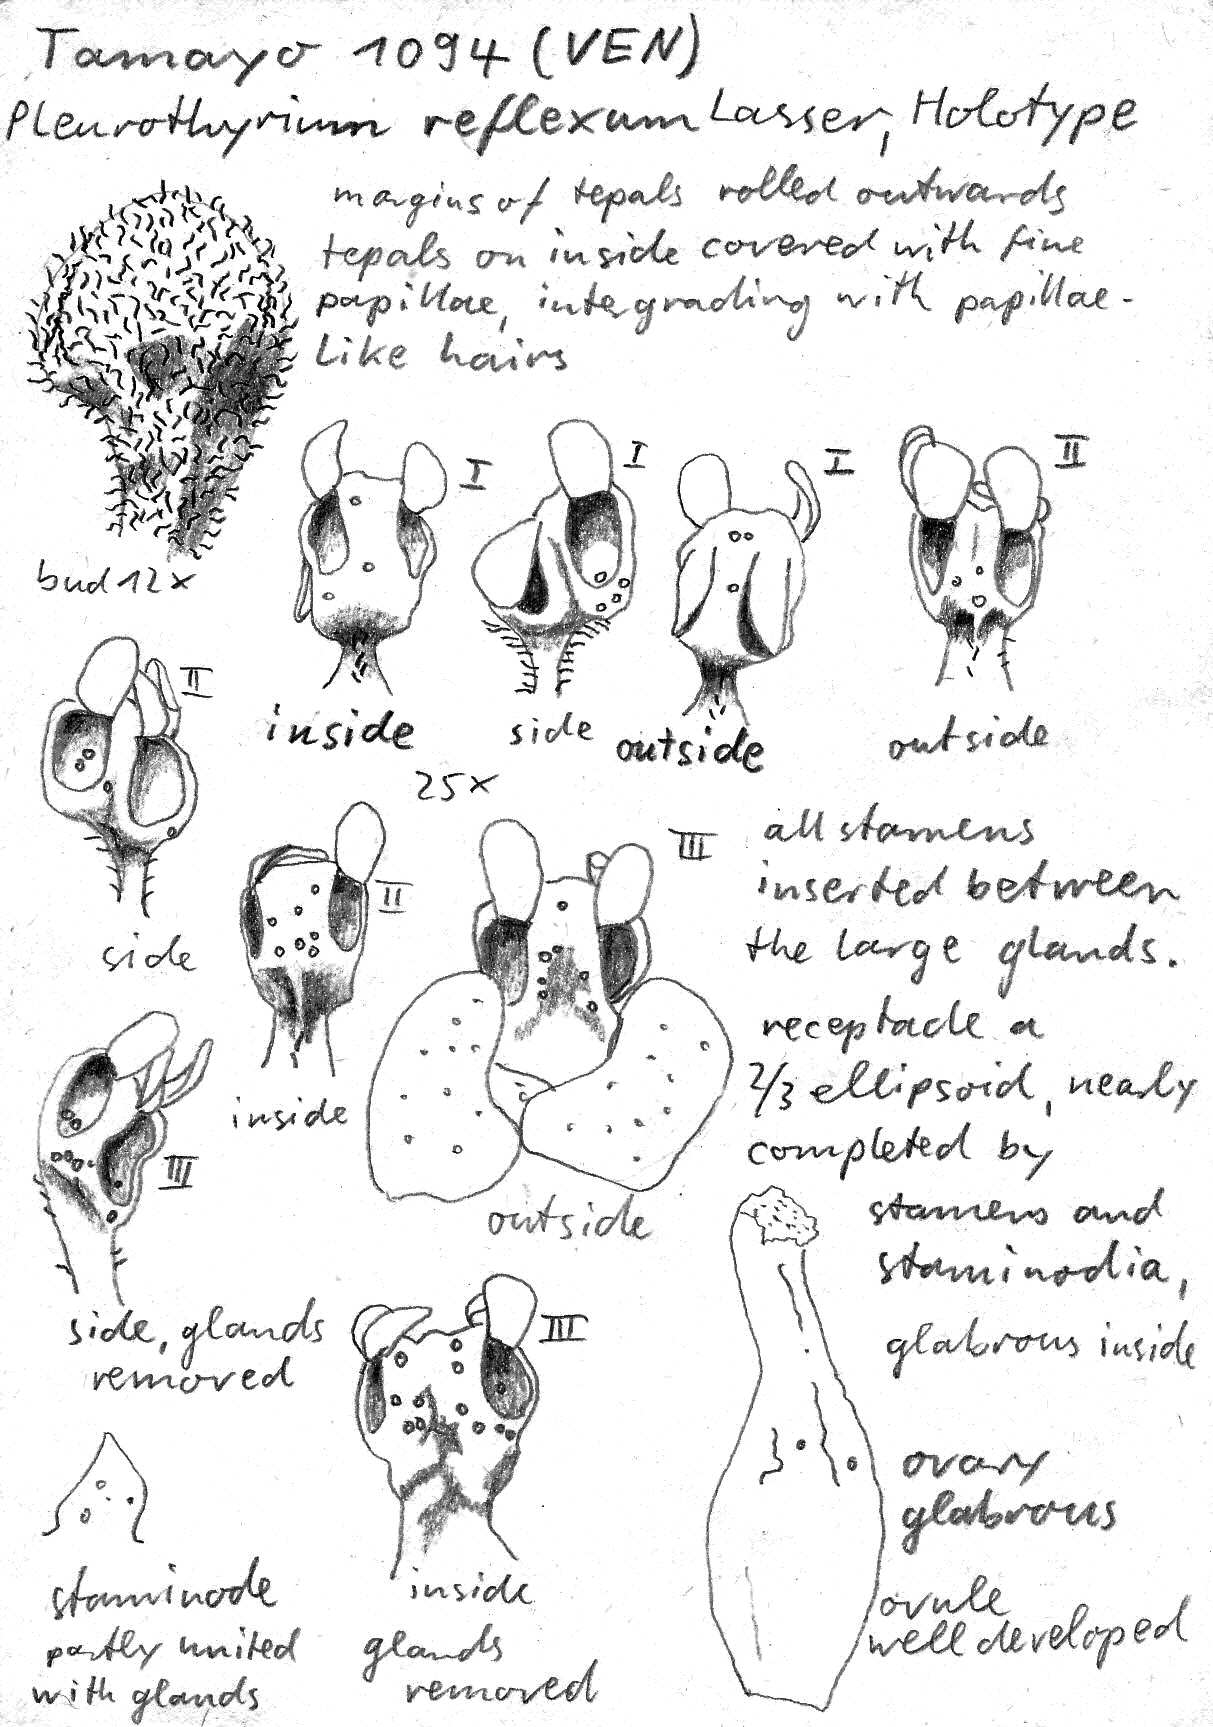 Tamayo 1094 (VEN)
Pleurothyrium reflexum Lasser, Holotype
margins of tepals rolled outwards
tepals on inside covered with fine
papillae, intergrading with papillae-
like hairs
bud 12x
I
I
I
II
inside
side
outside
outside
25x
II
side
II
inside
III
outside
all stamens
inserted between
the large glands.
receptacle a
2/3 ellipsoid, nearly
completed by
stamens and
staminodia,
glabrous inside
III
side, glands
removed
III
inside
glands
removed
staminode
partly united
with glands
ovary
glabrous
ovule
well developed